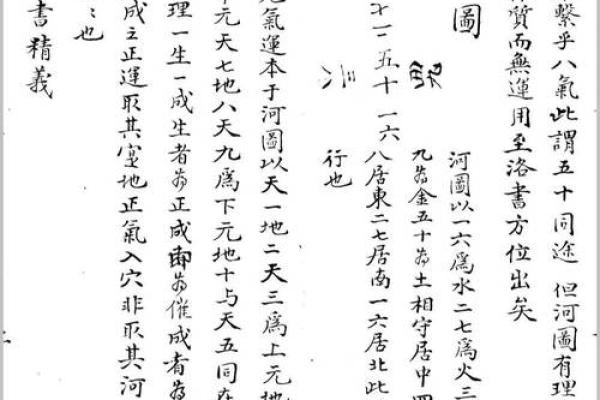 繫乎八氣此謂五十同途 但河圖有理
質而無運用至洛書方位出矣
圖
河圖以一六爲水二七爲火三
九為金五十為土相守居中四
二五十一六
八居東二七居南一六居北此
三八
行也
氣運本于河圖以天一地二天三爲上元地
元天七地八天九爲下元地十与天五同在
理一生一成生者為正成即為催成者為
成之正運取其寔地正氣入穴非取其河
也
書精義